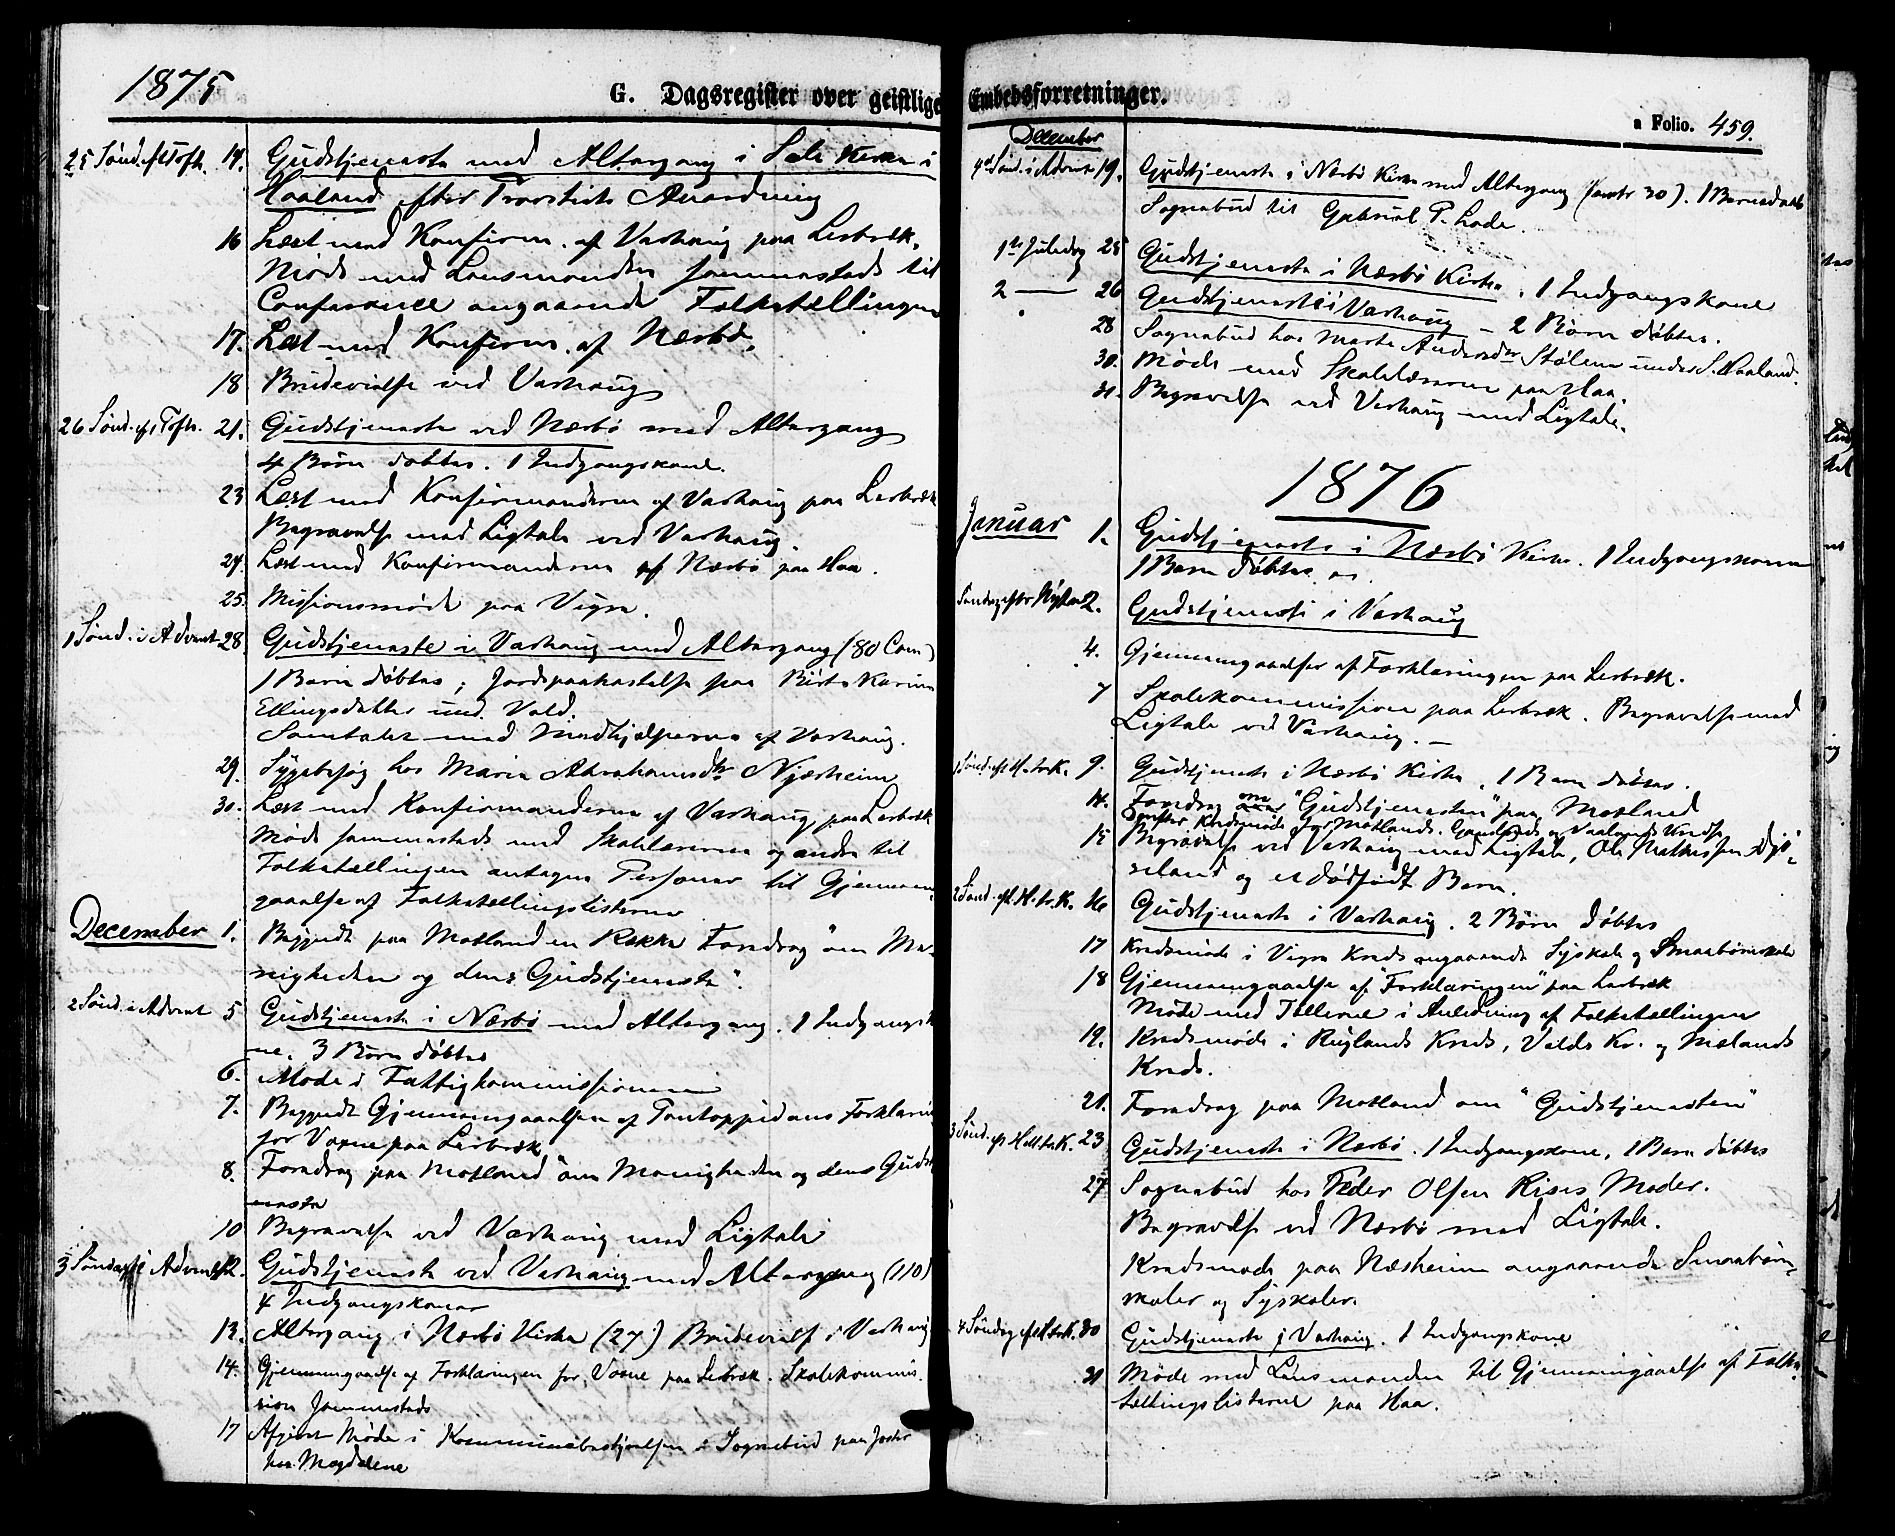 1875
G. Dagsregister over geistlige
25 Sønd. eft Trfth. 14. Gudstjeneste med Altergang i Sole Kirke i
Haaland efter Provstiets Anordning
16 Læst med Konfirm. af Varhaug paa Lerbræk.
Møde med Lensmanden sammesteds til
Conferance angaaende Folketællingen
17. Læst med Konfirm. af Nærbø.
18 Brudevielse ved Varhaug
26 Sønd. eft Trfth. 21. Gudstjeneste ved Nærbø med Altergang
4 Børn døbtes. 1 Indgangskone.
23 Læst med Konfirmanderne af Varhaug paa Lerbræk
Begravelse med Ligtale ved Varhaug
24. Læst med Konfirmanderne af Nærbø paa Haa.
25. Missionsmøde paa Vigre.
1 Sønd. i Advent 28 Gudstjeneste i Varhaug med Altergang (80 Com)
1 Barn døbtes; Jordpaakastelse paa Birte Karine
Ellingsdatter und. Vold.
Samtale med Medhjælperne af Varhaug.
29. Sygebesøg hos Maria Abrahamsdtr Njærheim
30. Læst med Konfirmanderne af Varhaug paa Lerbræk
Møde sammesteds med Skolelærerne og andre til
Folketællingen antagne Personer til Gjennem-
gaaelse af Folketællingslisterne
December 1. Begyndt paa Motland en Række Foredrag "om Me-
nigheden og dens Gudstjeneste".
2 Sønd. i Advent 5 Gudstjeneste i Nærbø med Altergang. 1 Indgangsko
ne. 3 Børn døbtes
6. Møde i Fattigkommissionen
7. Begyndt Gjennemgaaelsen af Pontoppidans Forklaring
for Voxne paa Lerbræk
8. Foredrag paa Motland "om Menigheden og dens Gudstj
eneste
10 Begravelse ved Varhaug med Ligtale
3 Søndag i Advent 12. Gudstjeneste ved Varhaug med Altergang (110)
4 Indgangskoner
13. Altergang i Nærbø Kirke (27) Brudevielse i Varhaug
14. Gjennemgaaelse af Forklaringen for Voxne paa Lerbræk. Skolekommis
sion sammesteds
17 Møde i Kommunebestyrelsen & Sognebud paa
hos Magdalene
Embedsforretninger.
a Folio. 459.
December
4de Sønd. i Advent 19. Gudstjeneste i Nærbø Kirke med Altergang (30). 1 Barnedaab
Sognebud til Gabriel P. Lode.
1ste Juledag 25 Gudstjeneste i Nærbø Kirke. 1 Indgangskone
2 — 26 Gudstjeneste i Varhaug – 2 Børn døbtes.
28 Sognebud hos Marte Andersdtr Stølen under S. Haaland.
30. Møde med Skolelærerne paa Haa.
31. Begravelse ved Varhaug med Ligtale.
1876
Januar 1. Gudstjeneste i Nærbø Kirke. 1 Indgangskone
1 Barn døbtes
Søndag efter Nytaar 2. Gudstjeneste i Varhaug
4. Gjennemgaaelse af Forklaringen paa Lerbræk.
7 Skolekommission paa Lerbræk. Begravelse med
Ligtale ved Varhaug. –
1 Sønd. eft H. tr. K. 9. Gudstjeneste i Nærbø Kirke, 1 Barn døbtes.
14. Foredrag om "Gudstjenesten" paa Motland
Kredsmøde for Motlands og Haalands Kreds
15 Begravelse ved Varhaug med Ligtale, Ole
reland og et dødfødt Barn.
2 Sønd. eft. H. tr. K. 16 Gudstjeneste i Varhaug. 2 Børn døbtes
17 Kredsmøde i Vigre Kreds angaaende Syskole og Smaabørnskole
18 Gjennemgaaelse af "Forklaringen" paa Lerbræk
Møde med Tællerne i Anledning af Folketællingen
19. Kredsmøde i Ruglands Kreds, Volds Kr. og Mælands
Kreds.
21. Foredrag paa Motland om "Gudstjenesten"
3 Sønd. eft Hell. tr. K. 23. Gudstjeneste i Nærbø. 1 Indgangskone, 1 Barn døbtes
27 Sognebud hos Peder Olsen Rises Moder.
Begravelse ved Nærbø med Ligtale.
Kredsmøde paa Næsheim angaaende Smaabørn-
skoler og Syskoler.
4 Søndag eft H. tr. K. 30 Gudstjeneste i Varhaug. 1 Indgangskone
31 Møde med Lensmanden til Gjennemgaaelse af Folke-
tællingslisterne paa Haa.